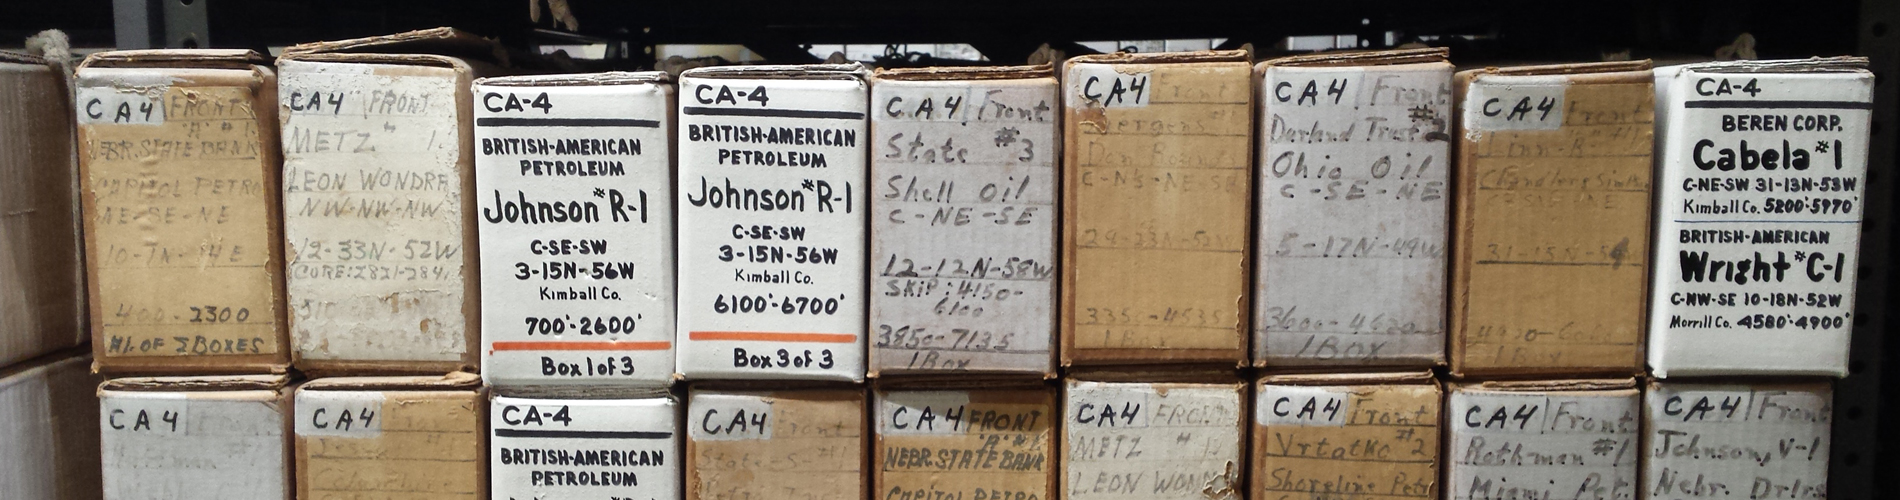 CA4 FRONT
"A" #1
NEBR. STATE BANK
CAPITOL PETRO
NE-SE-NE
10-1N-14E
400-2300
#1. OF 2 BOXES
CA4 FRONT
METZ " 1.
LEON WONDRA
NW-NW-NW
12-33N-52W
CORE:2821-284
CA-4
BRITISH-AMERICAN
PETROLEUM
Johnson #R-1
C-SE-SW
3-15N-56W
Kimball Co.
700'-2600'
Box 1 of 3
CA-4
BRITISH-AMERICAN
PETROLEUM
Johnson #R-1
C-SE-SW
3-15N-56W
Kimball Co.
6100'-6700'
Box 3 of 3
CA4 Front
State #3
Shell Oil
C-NE-SE
12-12N-58W
SKIP: 4150-
6100
3850-7135
1 Box
CA4 Front
#1
29-33N-52W
3350-4535
1 Box
CA4 Front
#2
Trust
Ohio Oil
C-SE-NE
5-17N-49W
3600-4620
1 Box
CA4 Front
31-15N-54
CA-4
BEREN CORP.
Cabela #1
C-NE-SW 31-13N-53W
Kimball Co. 5200'-5970'
BRITISH-AMERICAN
Wright #C-1
C-NW-SE 10-18N-52W
Morrill Co. 4580'-4900'
CA4 Front
#1
CA4 Front
CA-4
BRITISH-AMERICAN
PETROLEUM
CA4 Front
State #1
CA4 FRONT
"A" #1
NEBR. STATE BANK
CAPITOL PETRO
CA4 FRONT
METZ "
LEON WON
CA4 Front
Vrtatko #2
Shoreline Petr
CA4 Front
Rothman #1
Miami Pet.
CA4 Front
Johnson, V-1
Nebr. Drlrs